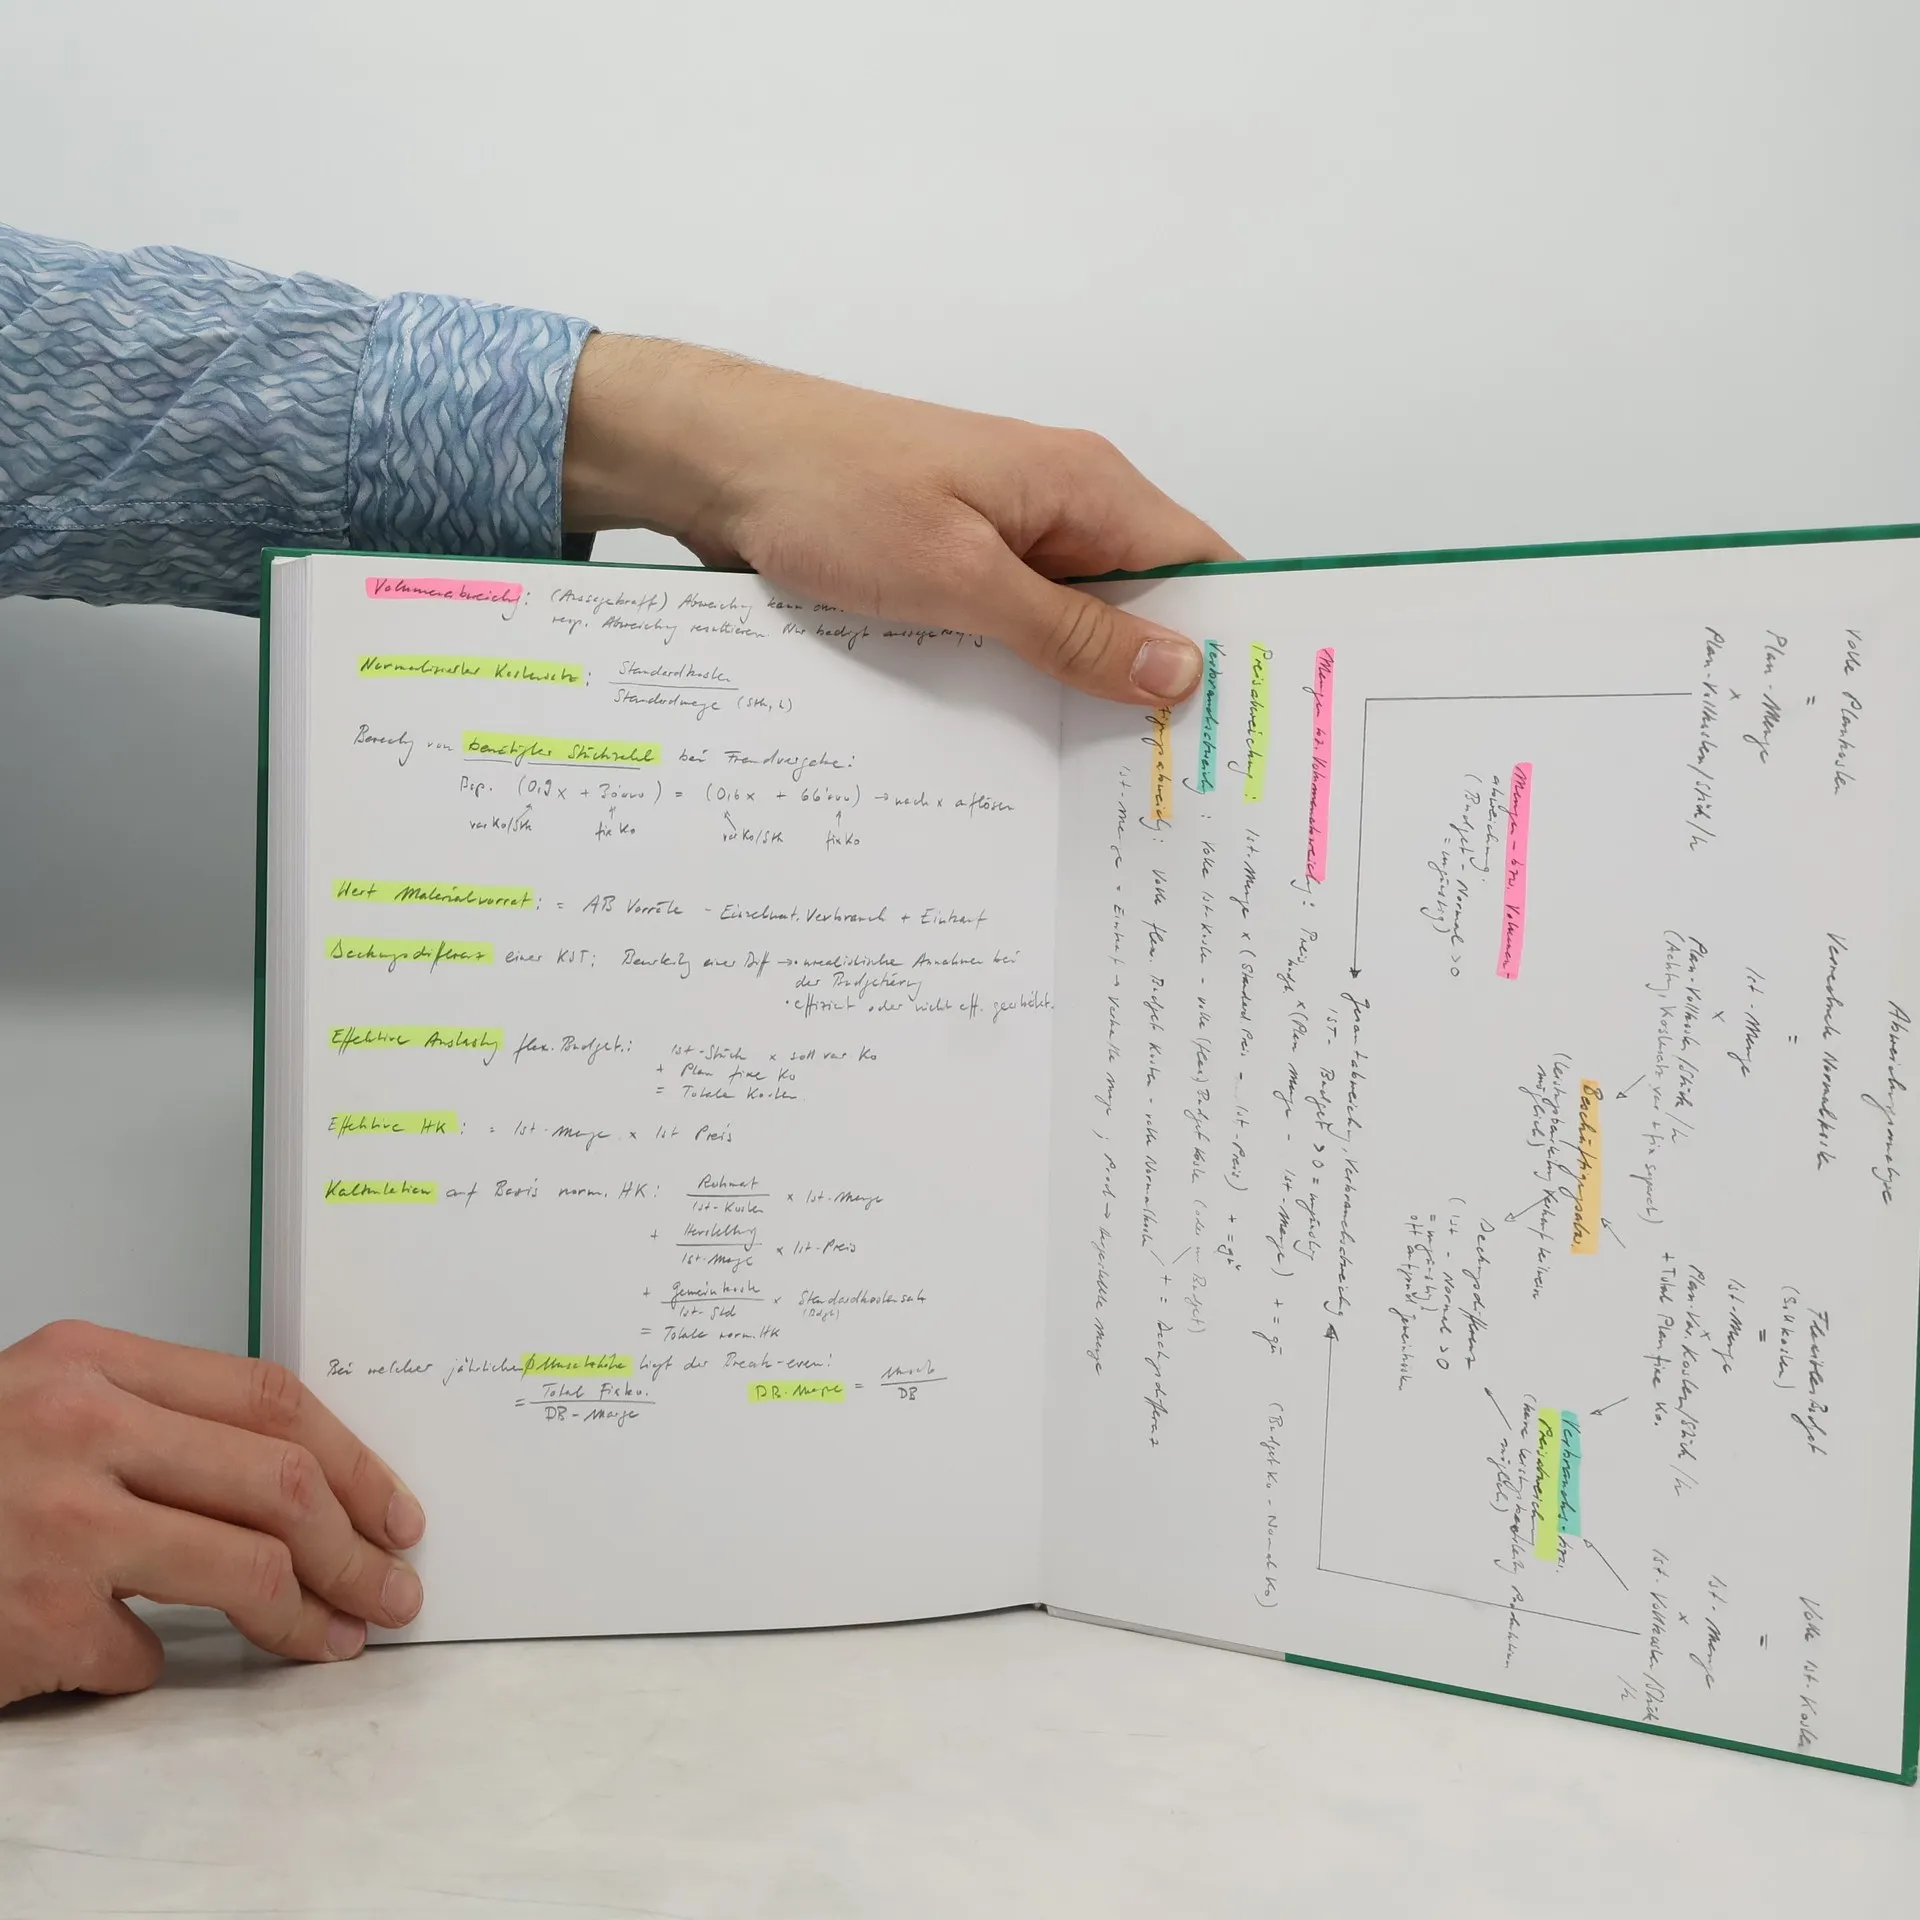 Volumenabweichg: (Aussagekraft) Abweichg kann
resp. Abweichg resultieren. Nur bedingt
Normalisierter Kostensatz: Standardkosten
Standardmenge (Stk, h)
Berechg von benötigter Stückzahl bei Fremdvergabe:
Bsp. (0,9x + 30'000) = (0,6x + 66'000) → nach x auflösen
var Ko/Stk fix Ko var Ko/Stk fix Ko
Wert Materialvorrat: = AB Vorräte - Einzelmat. Verbrauch + Einkauf
Deckungsdifferenz einer KST: Beurteilg einer Diff → • unrealistische Annahmen bei
der Budgetierung
• effizient oder nicht eff. gearbeitet.
Effektive Auslastg flex. Budget: Ist-Stück x soll var Ko
+ Plan fixe Ko
= Totale Kosten
Effektive HK: = Ist-Menge x Ist Preis
Kalkulation auf Basis norm. HK: Rohmat
Ist-Kosten x Ist-Menge
+ Herstellung
Ist-Menge x Ist-Preis
+ Gemeinkosten
Ist-Std x Standardkostensatz
(Budget)
= Totale norm. HK
Bei welcher jährlichen Umsatzhöhe liegt der Break-even?
= Total Fixko.
DB-Marge
DB-Marge = Umsatz
DB
Abweichungsanalyse
Volle Plankosten
Verrechnete Normalkosten
Flexibles Budget
(Sollkosten)
Volle Ist-Kosten
= = = =
Plan-Menge
Ist-Menge
Ist-Menge
Ist-Menge
x x x x
Plan-Vollkosten/Stück/h
Plan-Vollkosten/Stück/h
(Achtg, Kostensatz var + fix separat)
Plan-Var. Kosten/Stück/h
+ Total Plan fixe Ko.
Ist-Vollkosten/Stück
/h
Mengen- bzw. Volumen-
abweichung:
(Budget - Normal > 0
= ungünstig)
Beschäftigungsabw.
(Leistungsbeurteilung kaum
möglich)
Verbrauchs- bzw.
Preisabweichung
möglich)
Deckungsdifferenz
(Ist - Normal > 0
= ungünstig)
Gesamtabweichg, Verbrauchsabweichg
IST - Budget > 0 = ungünstig
Mengen bzw. Volumenabweichg: Preis Budget x (Plan Menge - Ist-Menge) + = gü (Budget Ko - Normal Ko)
Preisabweichung: Ist-Menge x (Standard Preis - Ist-Preis) + = gü
Verbrauchsabweichg: Volle Ist-Kosten - volle (flex) Budget Kosten
Volle flex. Budget Kosten - volle Normalkosten + = Deckgsdifferenz
Ist-Menge = Einkauf → verkaufte Menge; Prod → hergestellte Menge